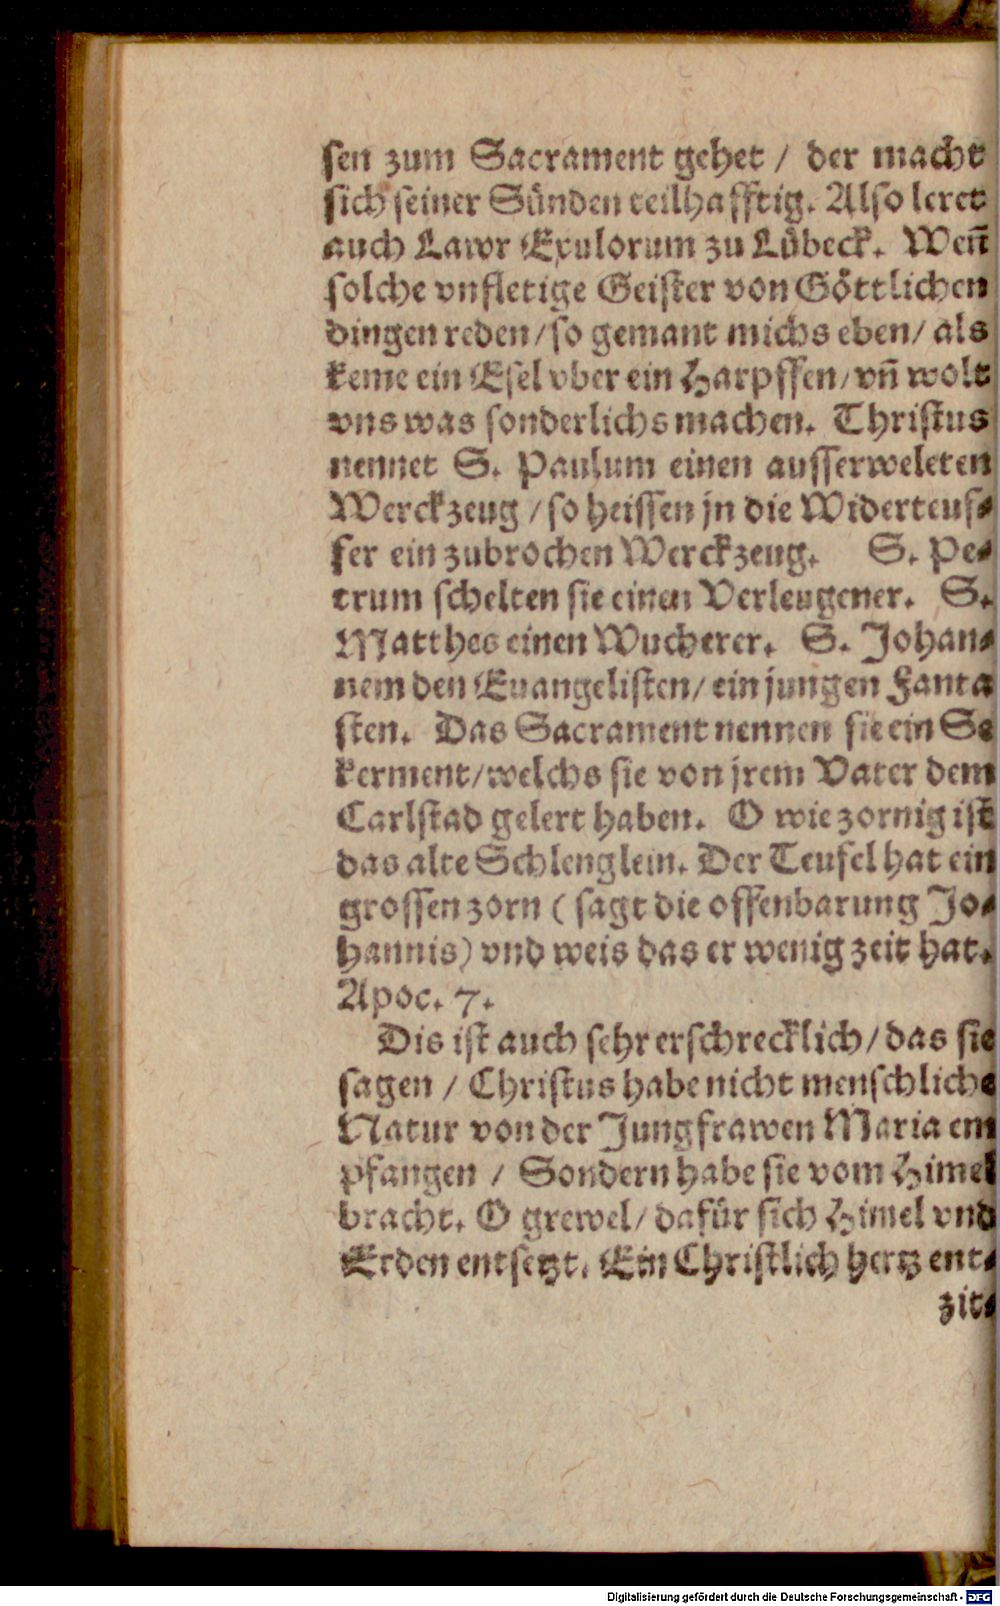 sen zum Sacrament gehet / der macht
sich seiner Sünden teilhafftig. Also leret
auch Lawr Exulorum zu Lübeck. Weñ
solche vnfletige Geister von Göttlichen
dingen reden / so gemant michs eben / als
keme ein Esel vber ein Harpffen / vñ wolt
vns was sonderlichs machen. Christus
nennet S. Paulum einen ausserweleten
Werckzeug / so heissen jn die Widerteuf⸗
fer ein zubrochen Werckzeug. S. Pe⸗
trum schelten sie einen Verleugener. S.
Matthes einen Wucherer. S. Johan⸗
nem den Euangelisten / ein jungen Fanta
sten. Das Sacrament nennen sie ein Se
kerment / welchs sie von jrem Vater dem
Carlstad gelert haben. O wie zornig ist
das alte Schlenglein. Der Teufel hat ein
grossen zorn ( sagt die offenbarung Jo⸗
hannis) vnd weis das er wenig zeit hat.
Apoc. 7.
Dis ist auch sehr erschrecklich / das sie
sagen / Christus habe nicht menschliche
Natur von der Jungfrawen Maria em
pfangen / Sondern habe sie vom Himel
bracht. O grewel / dafür sich Himel vnd
Erden entsetzt. Ein Christlich hertz ent⸗
zit⸗
Digitalisierung gefördert durch die Deutsche Forschungsgemeinschaft - DFG